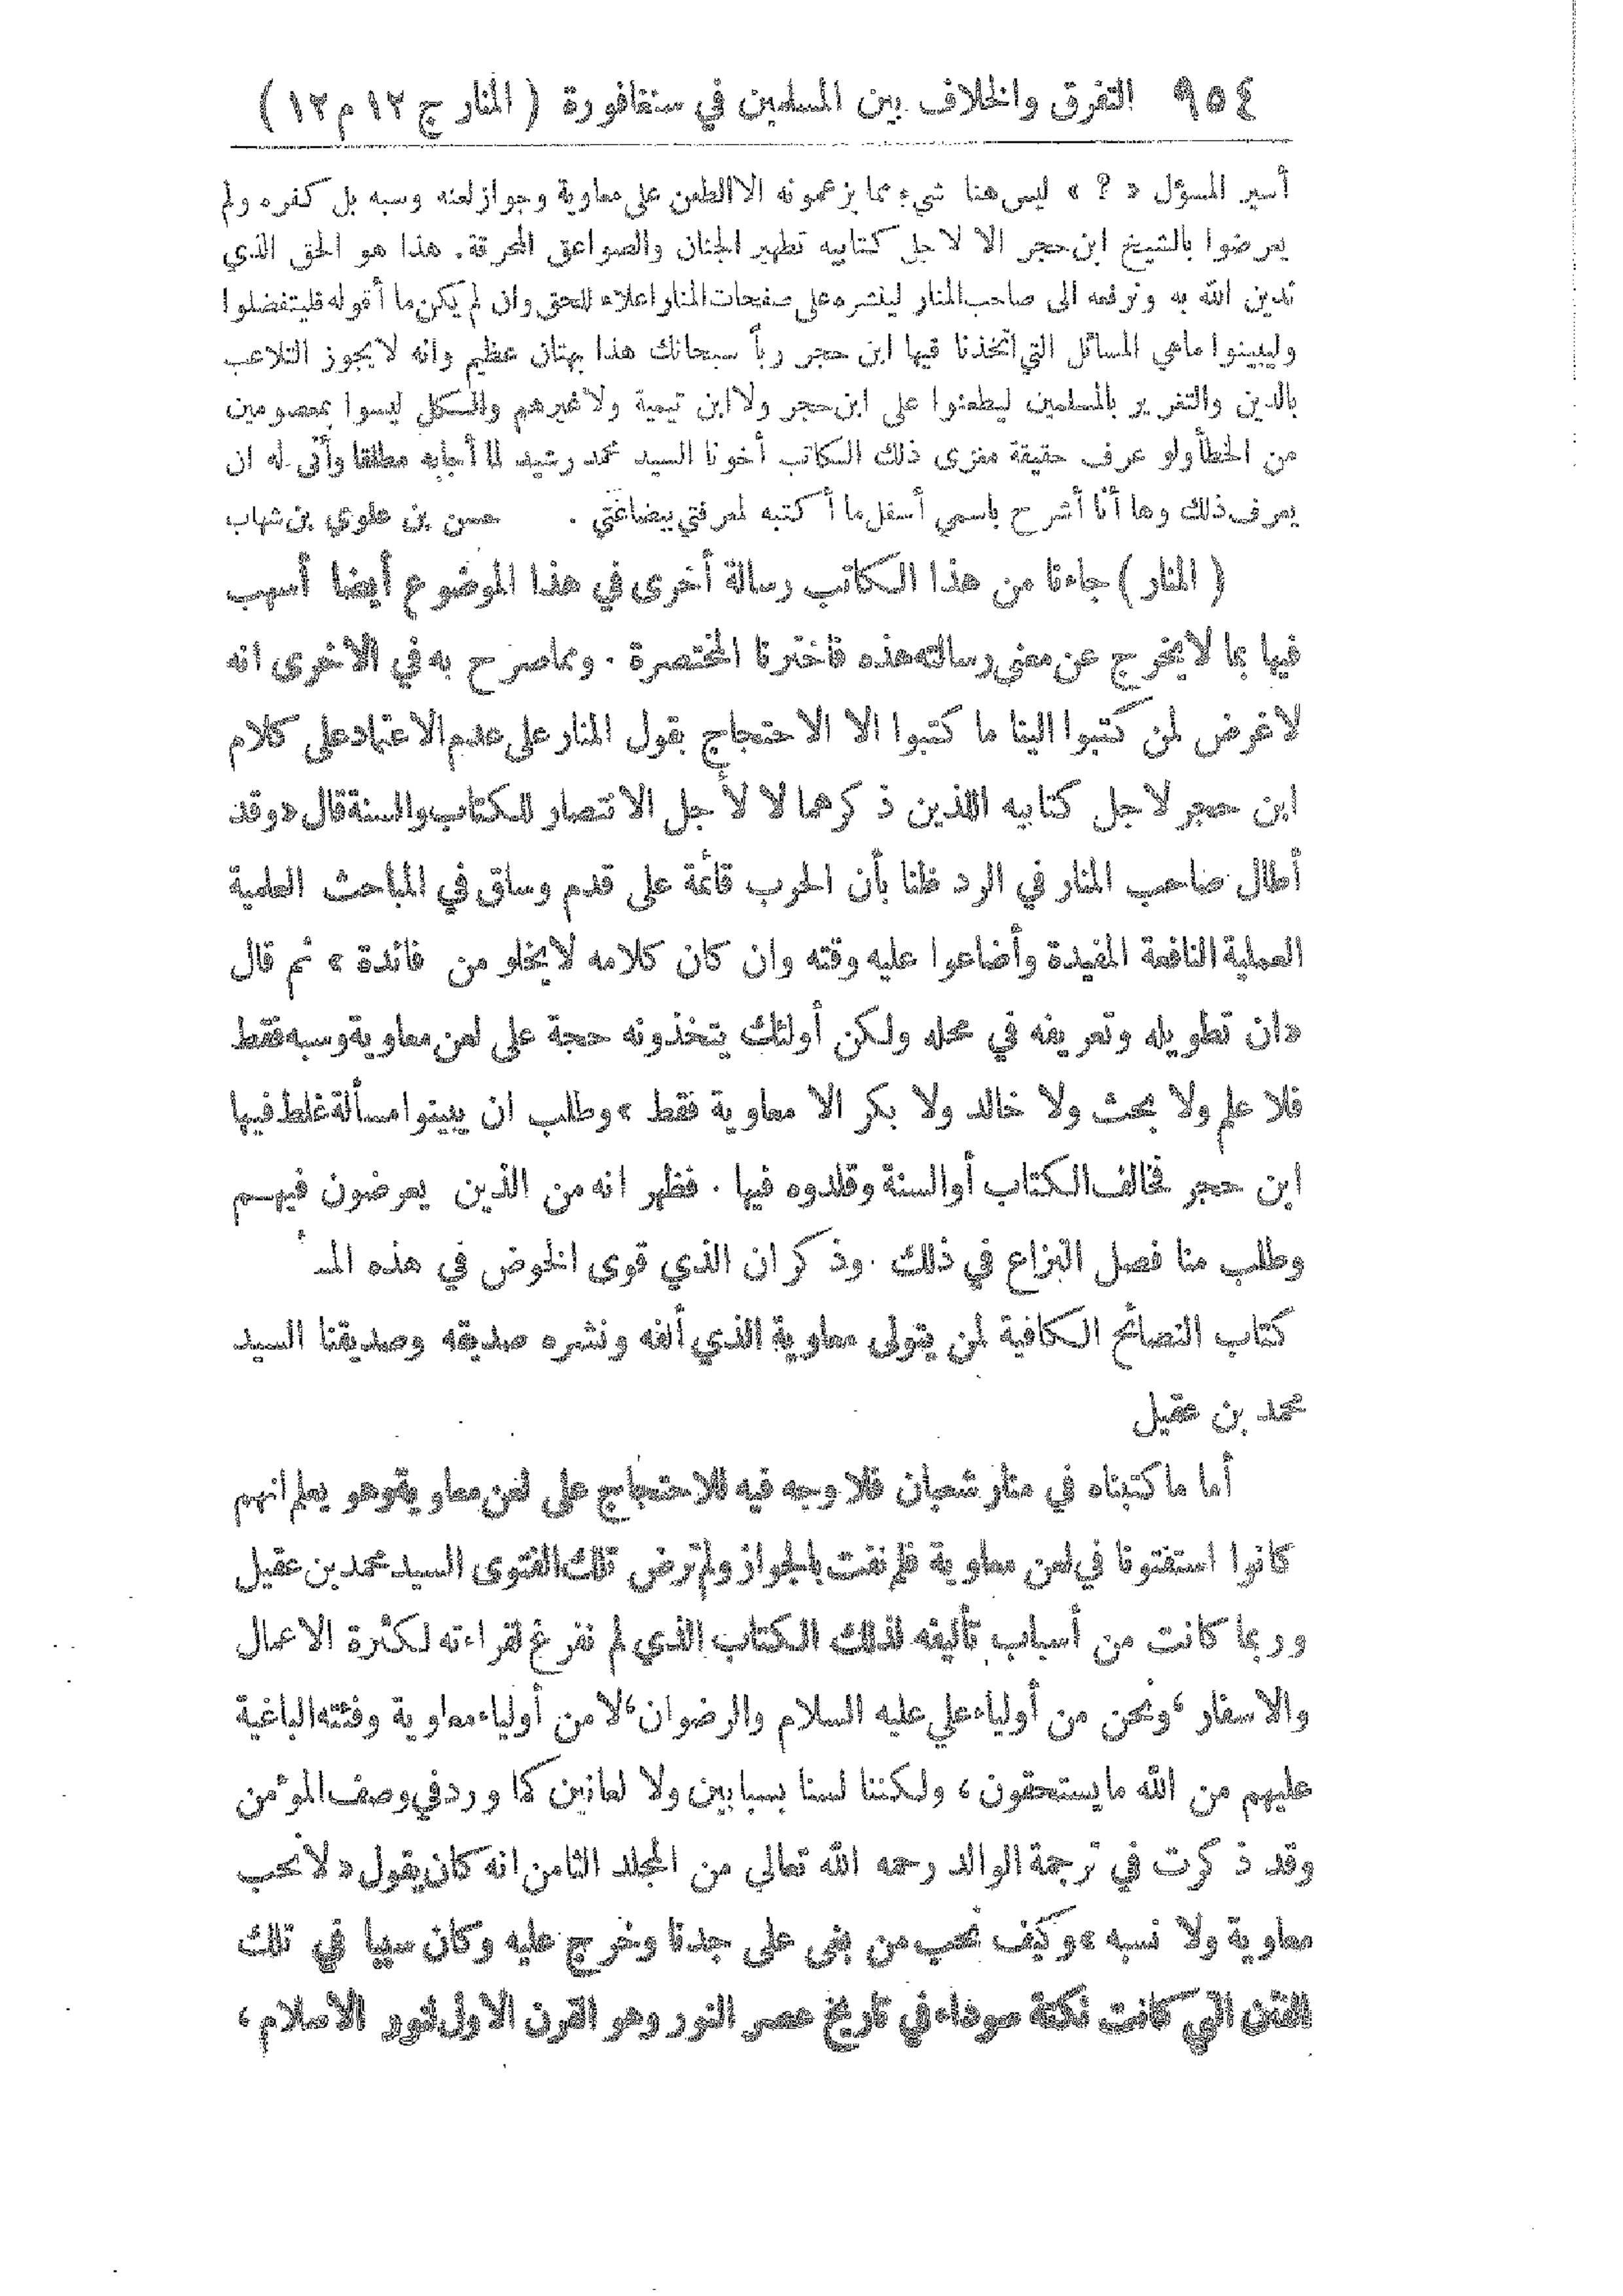 ٩٥٤ التفرق والخلاف بين المسلمين في سنغافورة ( المنار ج ١٢ م ١٢ )
أسير المسؤل « ? » ليس هنا شيء مما يزعمونه الا الطعن على معاوية وجواز لعنه وسبه بل كفره ولم
يعرضوا بالشيخ ابن حجر الا لاجل كتابيه تطهير الجنان والصواعق المحرقة . هذا هو الحق الذي
ندين الله به ونرفعه الى صاحب المنار لينشره على صفحات المنار اعلاء للحق وان لم يكن ما أقوله فليتفضلوا
وليبينوا ماهي المسائل التي اتخذنا فيها ابن حجر رباً سبحانك هذا بهتان عظيم وانه لا يجوز التلاعب
بالدين والتغرير بالمسلمين ليطعنوا على ابن حجر ولا ابن تيمية ولا غيرهم والكل ليسوا بمعصومين
من الخطأ ولو عرف حقيقة مغزى ذلك الكاتب أخونا السيد محمد رشيد لما أجابه مطلقا وأنى له ان
يعرف ذلك وها أنا أشرح باسمي أسفل ما أكتبه لمعرفتي ببضاعتي . حسن بن علوي بن شهاب
( المنار ) جاءنا من هذا الكاتب رسالة أخرى في هذا الموضوع أيضا أسهب
فيها بما لا يخرج عن معنى رسالته هذه فاخترنا المختصرة . ومما صرح به في الاخرى انه
لا غرض لمن كتبوا الينا ما كتبوا الا الاحتجاج بقول المنار على عدم الاعتماد على كلام
ابن حجر لاجل كتابيه اللذين ذكرهما لا لأجل الانتصار للكتاب والسنة قال « وقد
أطال صاحب المنار في الرد ظنا بأن الحرب قائمة على قدم وساق في المباحث العلمية
العملية النافعة المفيدة وأضاعوا عليه وقته وان كان كلامه لا يخلو من فائدة » ثم قال
« ان تطويله وتعريفه في محله ولكن أولئك يتخذونه حجة على لعن معاوية وسبه فقط
فلا علم ولا بحث ولا خالد ولا بكر الا معاوية فقط » وطلب ان يبينوا مسألة غلط فيها
ابن حجر فخالف الكتاب أو السنة وقلدوه فيها . فظهر انه من الذين يعرضون فيهم
وطلب منا فصل النزاع في ذلك . وذكر ان الذي قوى الخوض في هذه المـ
كتاب النصائح الكافية لمن يتولى معاوية الذي ألفه ونشره صديقه وصديقنا السيد
محمد بن عقيل
أما ما كتبناه في منار شعبان فلا وجه فيه للاحتجاج على لعن معاوية وهو يعلم انهم
كانوا استفتونا في لعن معاوية فلم نفت بالجواز ولم ترض تلك الفتوى السيد محمد بن عقيل
وربما كانت من أسباب تأليفه لذلك الكتاب الذي لم نفرغ لقراءته لكثرة الاعمال
والاسفار ، ونحن من أولياء علي عليه السلام والرضوان ، لا من أولياء معاوية وفئته الباغية
عليهم من الله ما يستحقون ، ولكننا لسنا بسبابين ولا لعانين كما ورد في وصف المؤمن
وقد ذكرت في ترجمة الوالد رحمه الله تعالى من المجلد الثامن انه كان يقول « لا نحب
معاوية ولا نسبه » وكيف نحب من بغى على جدنا وخرج عليه وكان سببا في تلك
الفتن التي كانت نكتة سوداء في تاريخ عصر النور وهو القرن الاول لنور الاسلام ،